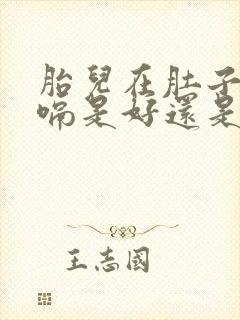 胎兒在肚子
嗝是好還是
王志國